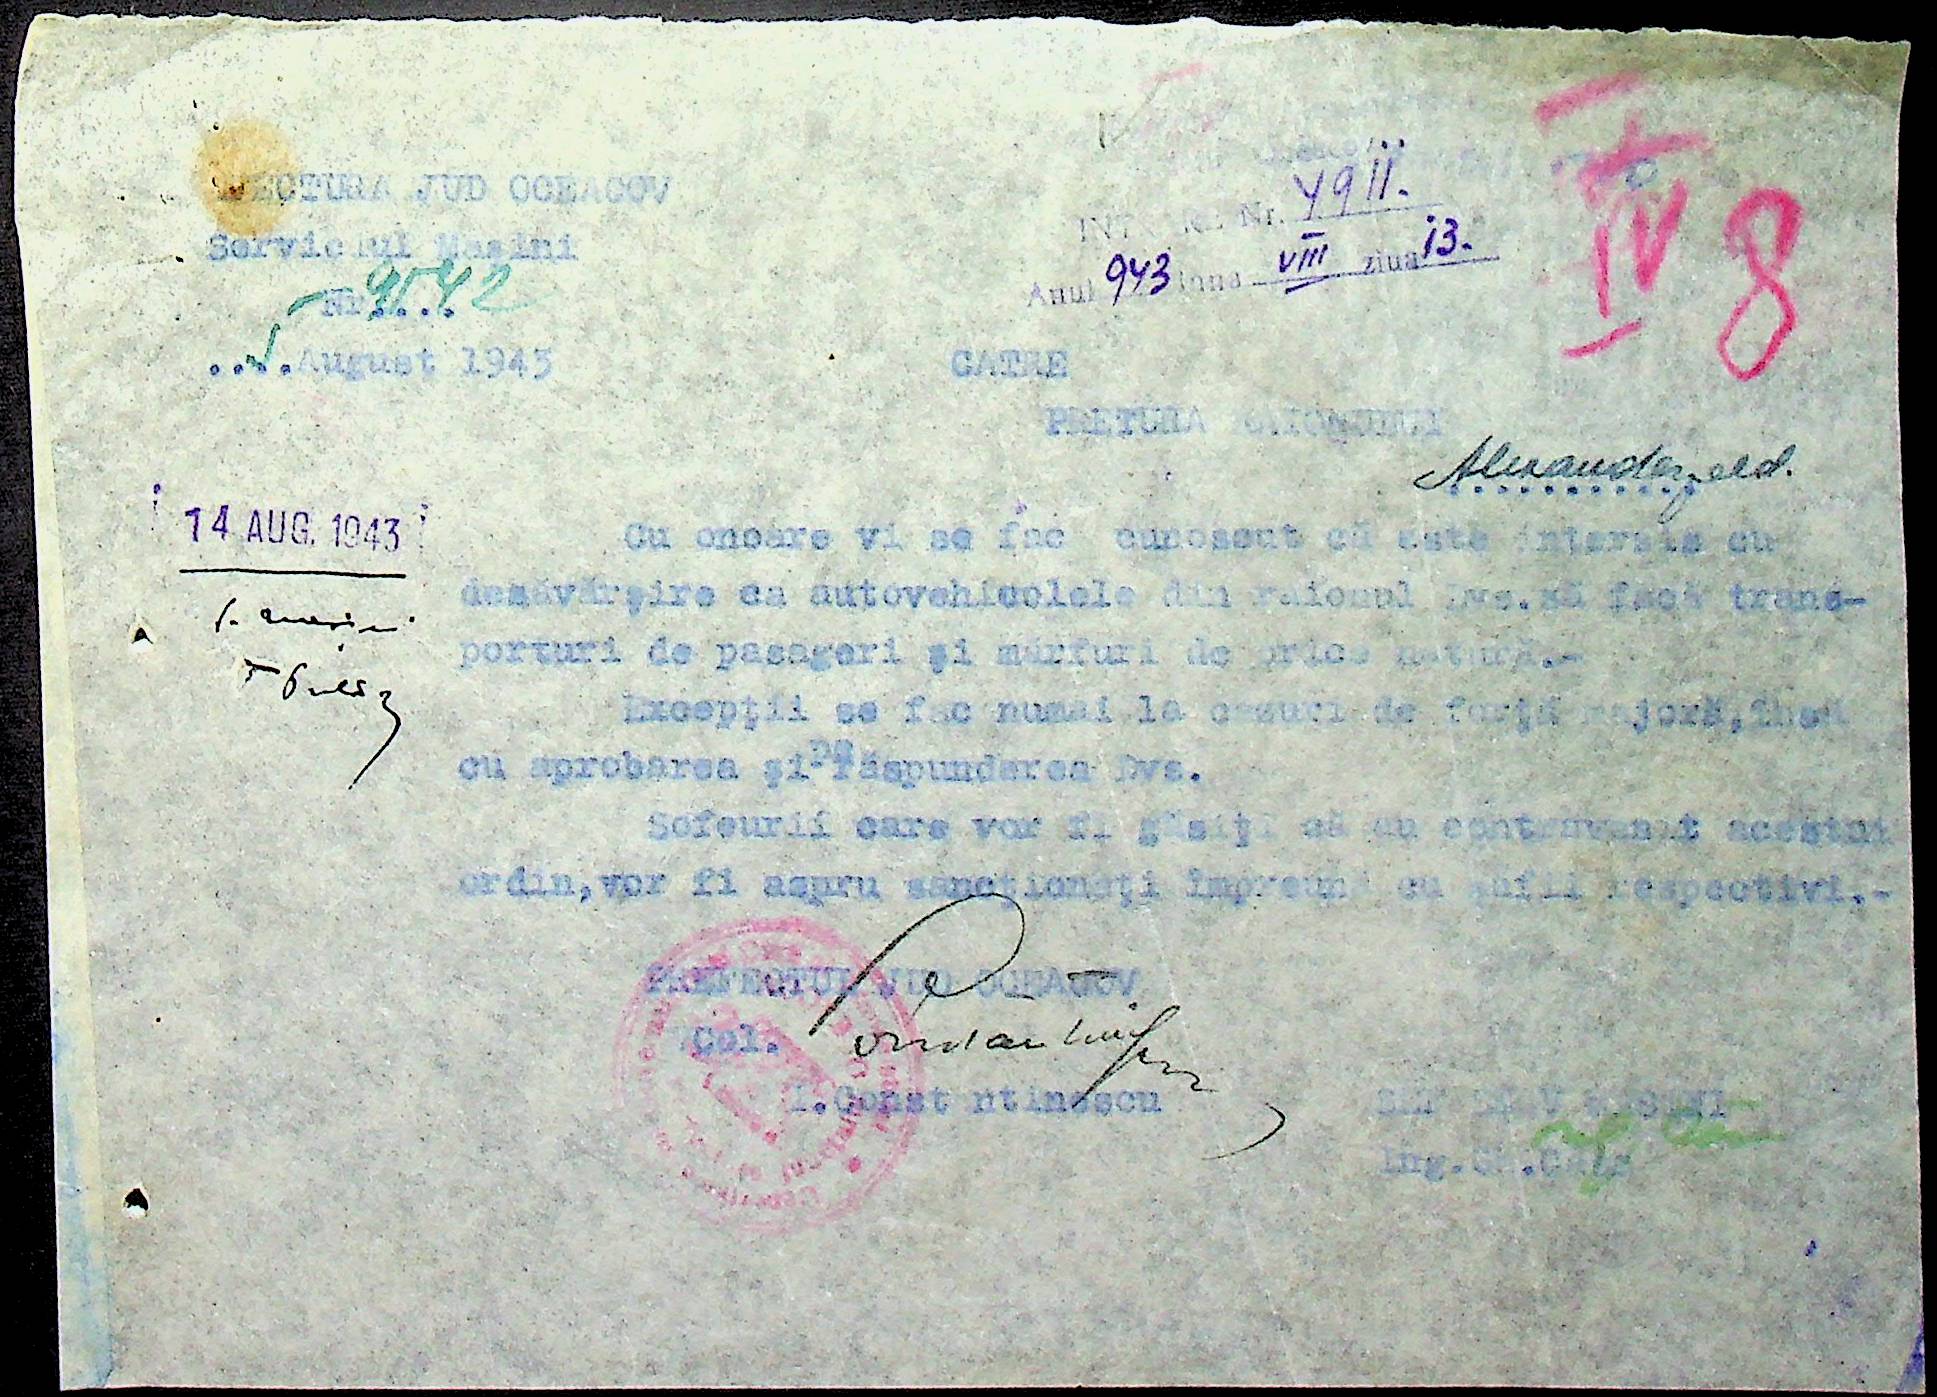 ECTURA JUD OCEACOV
Serviciul Masini
Nr.... 9542
.....August 1943
INTRARE Nr. 4911.
Anul 943 luna VIII ziua 13.
IV 8
CATRE
PRETURA RAIONULUI
Alexanderfeld.
14 AUG. 1943
Cu onoare vi se fac cunoscut că este interzis cu
desăvârşire ca autovehicolele din raionul Dvs.să facă trans-
porturi de pasageri şi mărfuri de orice natură.-
Excepţii se fac numai la cazuri de forţă majoră,însă
cu aprobarea şi pe răspunderea Dvs.
Sofeurii care vor fi găsiţi că au contravenit acestui
ordin,vor fi aspru sancţionaţi împreună cu şefii respectivi.-
PREFECTUL JUD OCEACOV
Col.
I.Const ntinescu
SEF SERV MASINI
Ing.